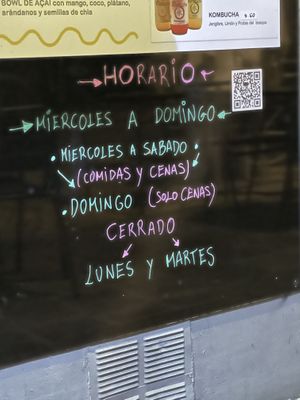 BOWL DE AÇAI con mango, coco, plátano,
arándanos y semillas de chia
KOMBUCHA
Jengibre, Limón y Frutas del Bosque
HORARIO
MIERCOLES A DOMINGO
• MIERCOLES A SABADO •
(COMIDAS Y CENAS)
• DOMINGO (SOLO CENAS)
CERRADO
LUNES Y MARTES